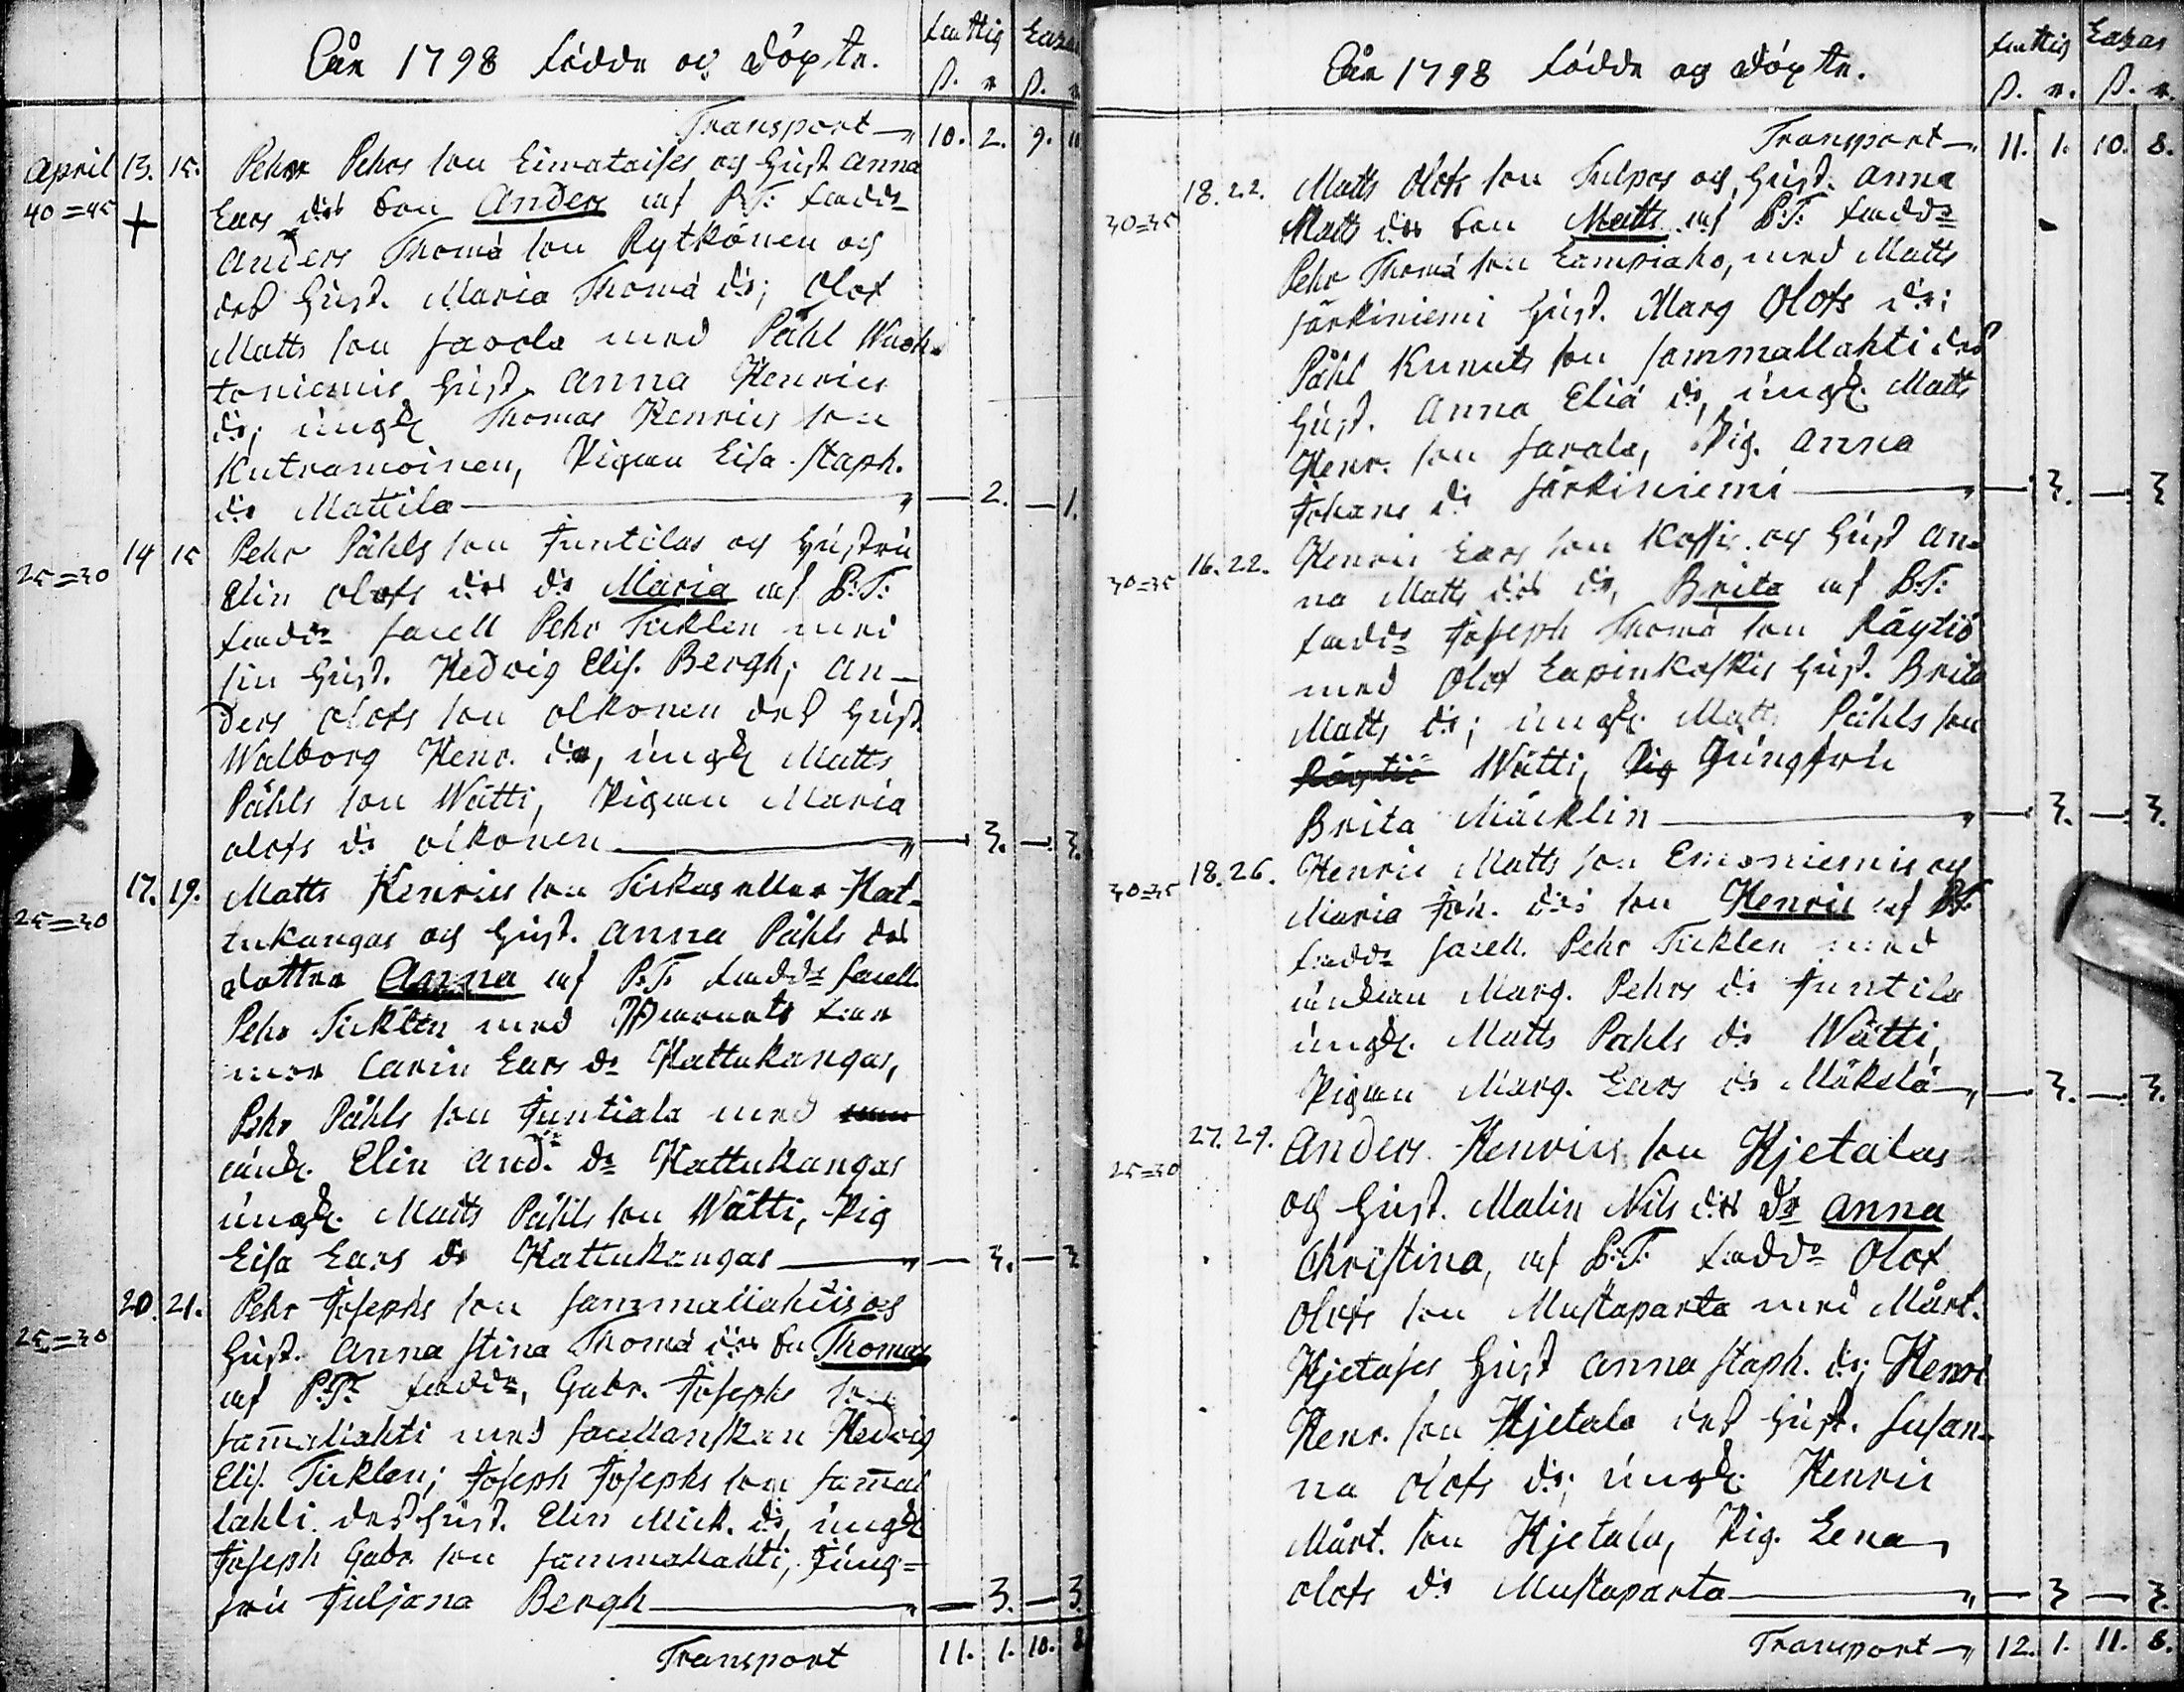 Åår 1798 födde och döpte.
fattig Lazar.
ß. r. ß. r.
Transport 10. 2. 9. 11
April 13. 15. Pehr Pehrs son Limataises och hust Anna
40=45 + Lars dr: son Anders af B:T: fadd:
Anders Thomæ son Rytkönen och
des hust. Maria Thomæ dr; Olof
Matts son Savola med Påhl Wuoh-
toniemis hust. Anna Henrics
dr; ungk Thomas Henrics son
Kutramoinen, Pigan Lisa Staph.
dr Mattila — 2. — 1.
14 15 Pehr Påhls son Juntilas och hustru
25=30 Elin Olofs drs dr Maria af B:T:
fadd: Sacell Pehr Ticklen med
sin hust. Hedvig Elis. Bergh; An-
ders Olofs son Olkonen des hust
Walborg Henr. dr, ungk Matts
Påhls son Wätti, Pigan Maria
Olofs dr Olkonen — 3. — 3.
17. 19. Matts Henrics son Tickas eller Hat-
25=30 tukangas och hust. Anna Påhls drs
dotter Anna af B:T: fadd: Sacell.
Pehr Ticklen med
mor Carin Lars dr Hattukangas,
Pehr Påhls son Juntiala med
änk. Elin And. dr Hattukangas
ungk. Matts Påhls son Wätti, Pig
Lisa Lars dr Hattukangas — 3. — 3
20. 21. Pehr Josephs son Sammaliahtis och
25=30 hust. Anna Stina Thomæ drs son Thomas
af B:T: fadd:, Gabr. Josephs son
Sam̅aliahti med Sacellanskan Hedvig
Elis. Ticklen; Joseph Josephs son Sam̅al
lahti des hust. Elin Mick. dr, ungk
Joseph Gabr. son Sammallahti, Jung-
fru Juljana Bergh — 3. — 3.
Transport 11. 1. 10. 8
Åår 1798 födde och döpte.
fattig Lazar
ß. r. ß. r.
Transport 11. 1. 10. 8.
18. 22. Matts Olofs son Tulpos och hust. Anna
30=35 Matts drs son Matts af B:T: fadd:
Pehr Thomæ son Lampiaho, med Matts
Särkiniemi hust. Marg Olofs dr;
Påhl Knuuts son Sammallahti des
hust. Anna Eliæ dr, ungk. Matts
Henr. son Savala, Pig. Anna
Johans dr Särkiniemi — 3. — 3
16. 22. Henric Lars son Kossis och hust An-
30=35 na Matts drs dr, Brita af B:T:
fadd: Joseph Thomæ son Räytiö
med Olof Lapinkoskis hust. Brita
Matts dr; ungk. Matts Påhls son
Räytiö Wätti, Pig Jungfru
Brita Mäcklin — 3. — 3.
18. 26. Henric Matts son Emoniemis och
30=35 Maria Joh. drs son Henric af B:T:
fadd: Sacell. Pehr Ticklen med
änkan Marg. Pehrs dr Juntila
ungk. Matts Påhls dr Wätti,
Pigan Marg. Lars dr Mäkelä — 3. — 3.
27. 29. Anders Henrics son Hjetalas
25=30 och hust. Malin Nils drs dr Anna
Christina, af B:T: fadd: Olof
Olofs son Mustaparta med Mårt.
Hjetases hust Anna Staph. dr; Henr
Henr. son Hjetala des hust. Susan-
na Olofs dr; ungk. Henric
Mårt. son Hjetala, Pig. Lena
Olofs dr Mustaparta — 3 — 3.
Transport 12. 1. 11. 8.